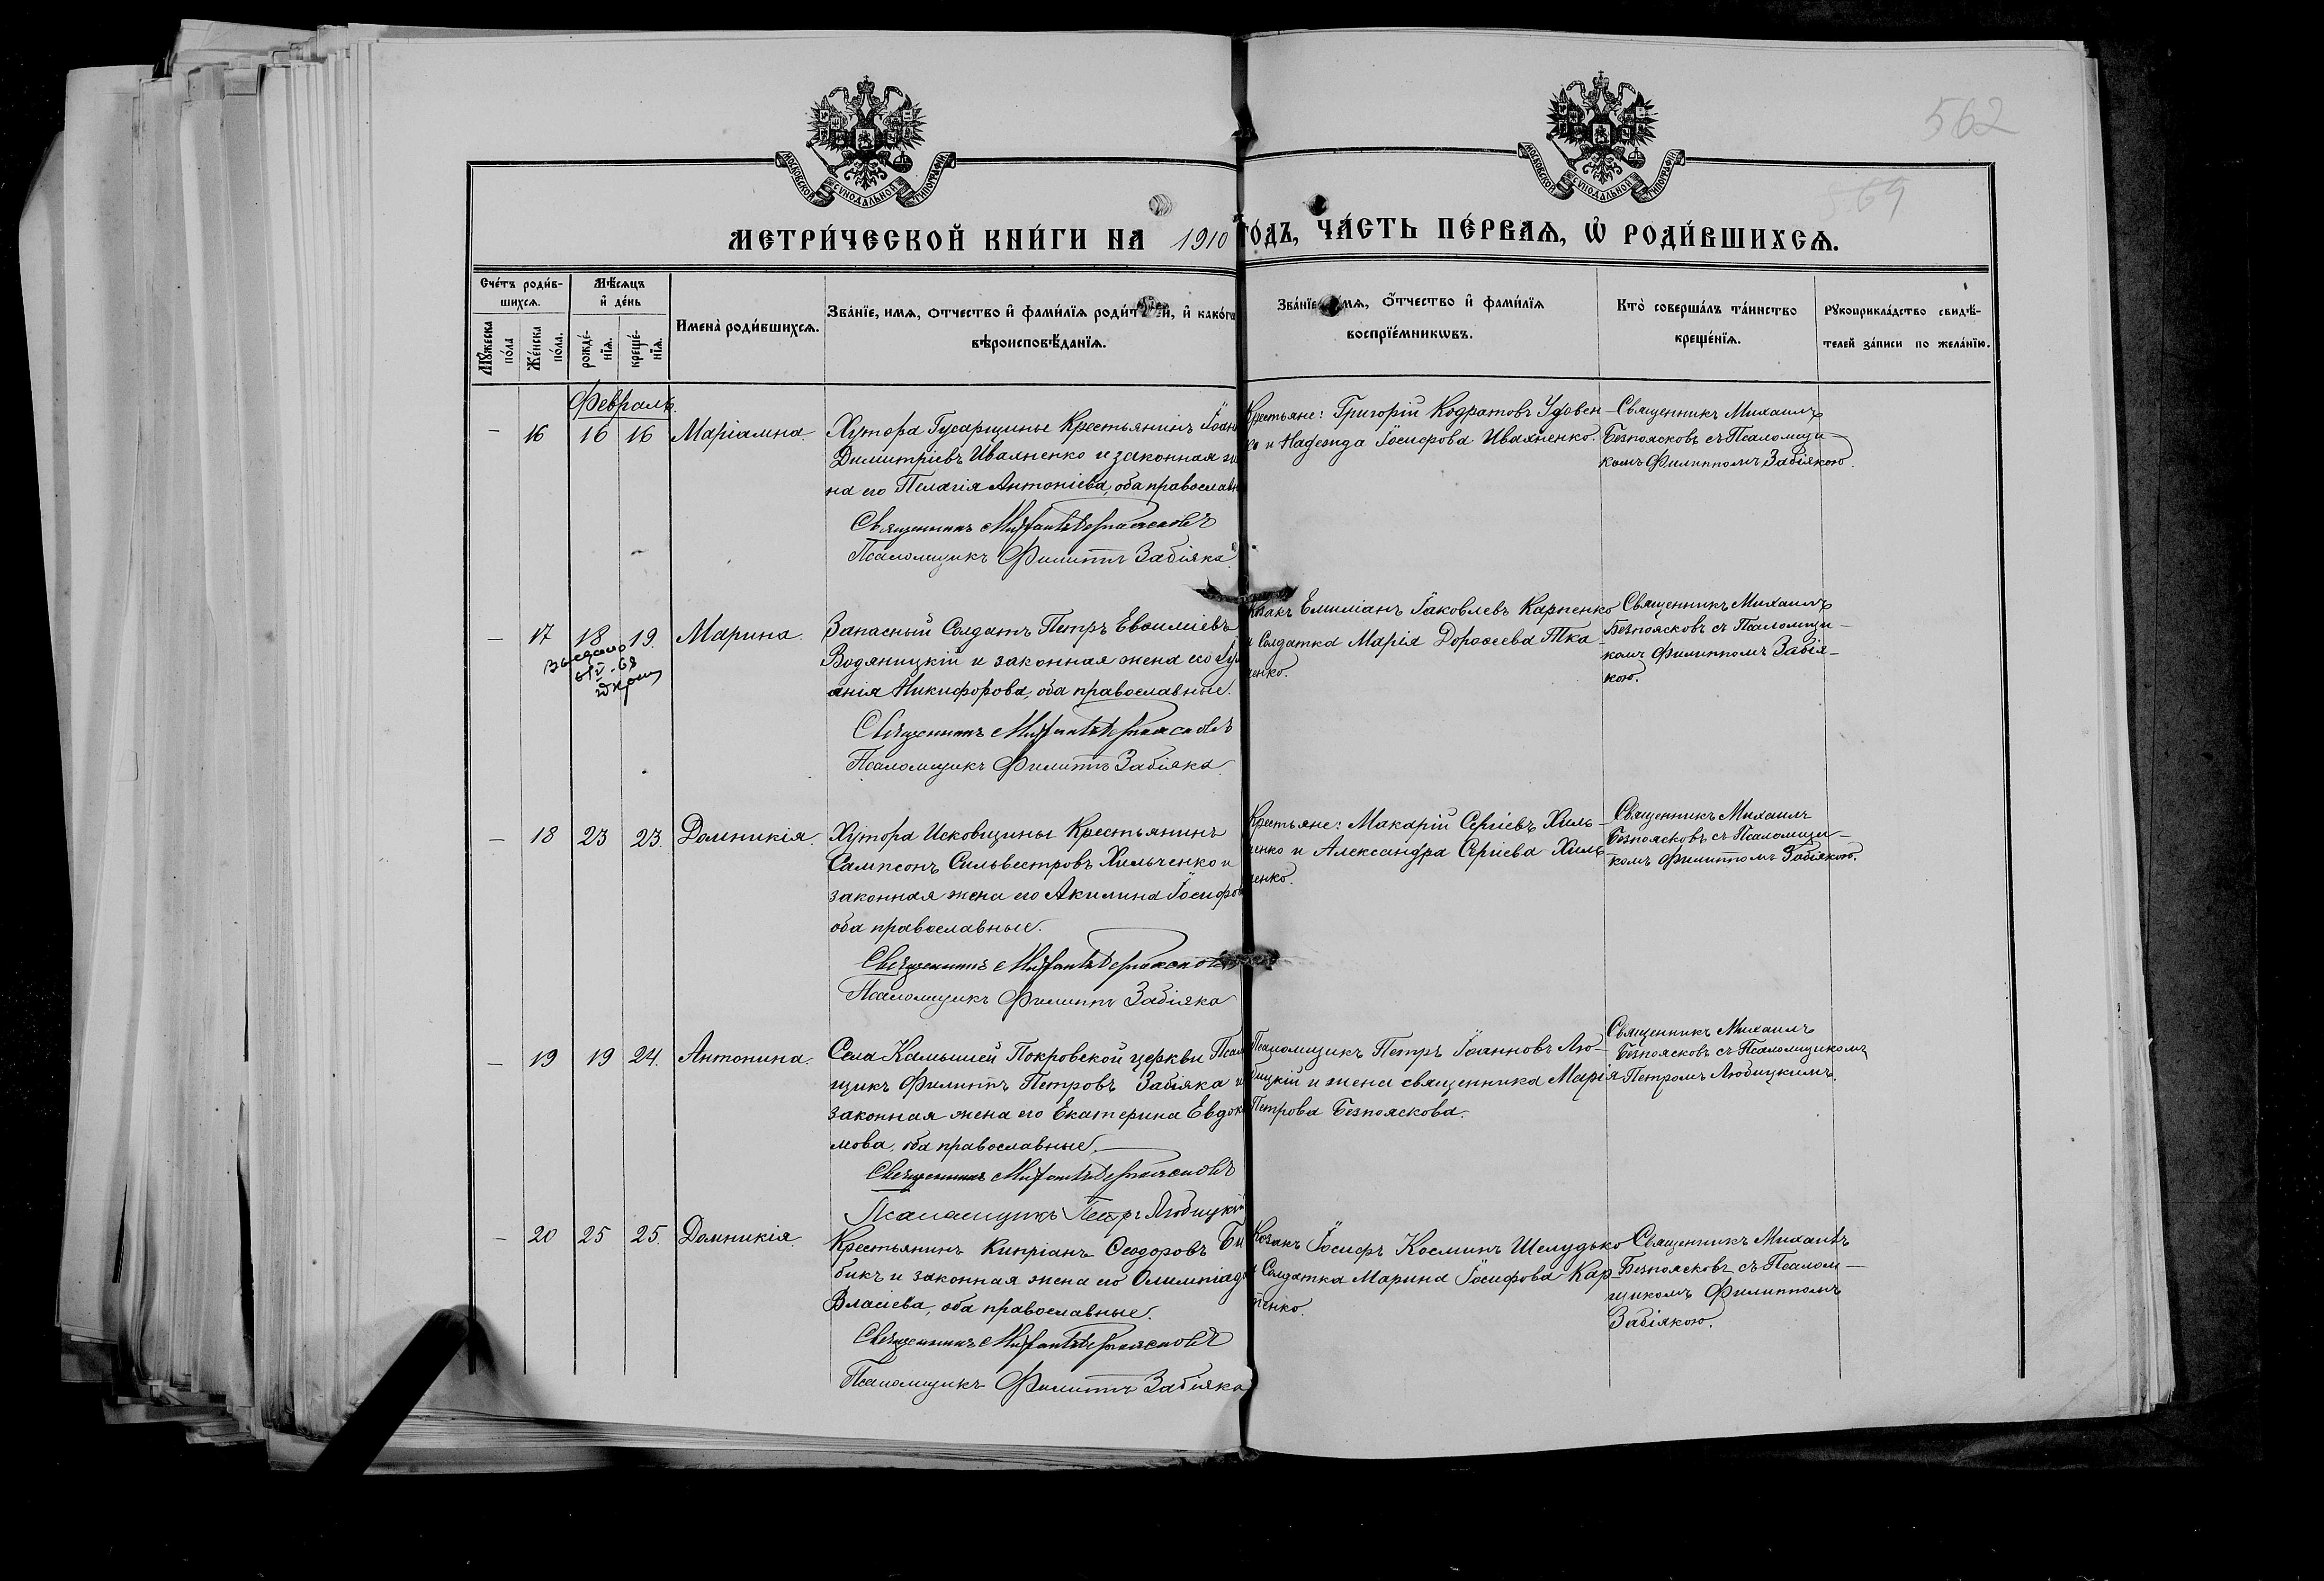 562
569
МОСКОВСКОЙ СѴНОДАЛЬНОЙ ТИПОГРАФІИ
МОСКОВСКОЙ СѴНОДАЛЬНОЙ ТИПОГРАФІИ
МЕТРИ́ЧЕСКОЙ КНИ́ГИ НА 1910 ГО́ДЪ, ЧА́СТЬ ПЕ́РВАѦ, Ѡ҆ РОДИ́ВШИХСѦ.
Сче́тъ роди́в-
шихсѧ.
Мꙋ́жеска
по́ла
Же́нска
по́ла.
Мѣ́сѧцъ
и҆ де́нь
рожде́-
нїѧ.
креще́-
нїѧ.
Имена̀ роди́вшихсѧ.
Зва́нїе, имѧ, ѻтчество и҆ фами́лїѧ роди́телей, и҆ како́гѡ
вѣроисповѣ́данїѧ.
Зва́нїе, имѧ, ѻ҆́тчество и҆ фами́лїѧ
воспрїе́мникѡвъ.
Кто̀ соверша́лъ та́инство
креще́нїѧ.
Рꙋкоприкла́дство свидѣ́-
телей за́писи по жела́нїю.
Февраль.
– 16 16 16 Маріамна.
Хутора Гусарщины Крестьянинъ Іоан
Димитріевъ Иваненко и законная же
на его Пелагія Антоніева, оба православн
Священникъ Михаилъ Безпоясковъ
Псаломщикъ Филиппъ Забіяка
Крестьяне: Григорій Кодратовъ Удовен
ко и Надежда Іосифова Иваненко.
Священникъ Михаилъ
Безпоясковъ съ Псаломщи-
комъ Филиппомъ Забіякою.
– 17 18 19. Марина.
Запасный Солдатъ Петръ Евѳиміевъ
Водяницкій и законная жена его
анія Никифорова, оба православные.
Священникъ Михаилъ Безпоясковъ
Псаломщикъ Филиппъ Забіяка
Козакъ Емиліанъ Іаковлевъ Карпенко
и Солдатка Марія Дороѳеева Тка-
ченко.
Священникъ Михаилъ
Безпоясковъ съ Псаломщи-
комъ Филиппомъ Забія-
кою.
– 18 23 23. Домникія.
Хутора Исковщины Крестьянинъ
Сампсонъ Сильвестровъ Хильченко и
законная жена его Акилина Іосифов
оба православные.
Священникъ Михаилъ Безпоясковъ
Псаломщикъ Филиппъ Забіяка
Крестьяне: Макарій Сергіевъ Хиль-
ченко и Александра Сергіева Хиль-
ченко.
Священникъ Михаилъ
Безпоясковъ съ Псаломщи-
комъ Филиппомъ Забіякою.
– 19 19 24. Антонина.
Села Камышей Покровской церкви Псалом
щикъ Филиппъ Петровъ Забіяка и
законная жена его Екатерина Евдоки
мова, оба православные.
Священникъ Михаилъ Безпоясковъ
Псаломщикъ Петръ Любицкій
Псаломщикъ Петръ Іоанновъ Лю-
бицкій и жена священника Марія
Петрова Безпояскова.
Священникъ Михаилъ
Безпоясковъ съ Псаломщикомъ
Петромъ Любицкимъ.
– 20 25 25. Домникія.
Крестьянинъ Кипріанъ Ѳеодоровъ Би
бикъ и законная жена его Олимпіада
Власіева, оба православные.
Священникъ Михаилъ Безпоясковъ
Псаломщикъ Филиппъ Забіяка
Козакъ Іосифъ Косминъ Шелудько
и Солдатка Марина Іосифова Кар-
пенко.
Священникъ Михаилъ
Безпоясковъ съ Псалом-
щикомъ Филиппомъ
Забіякою.